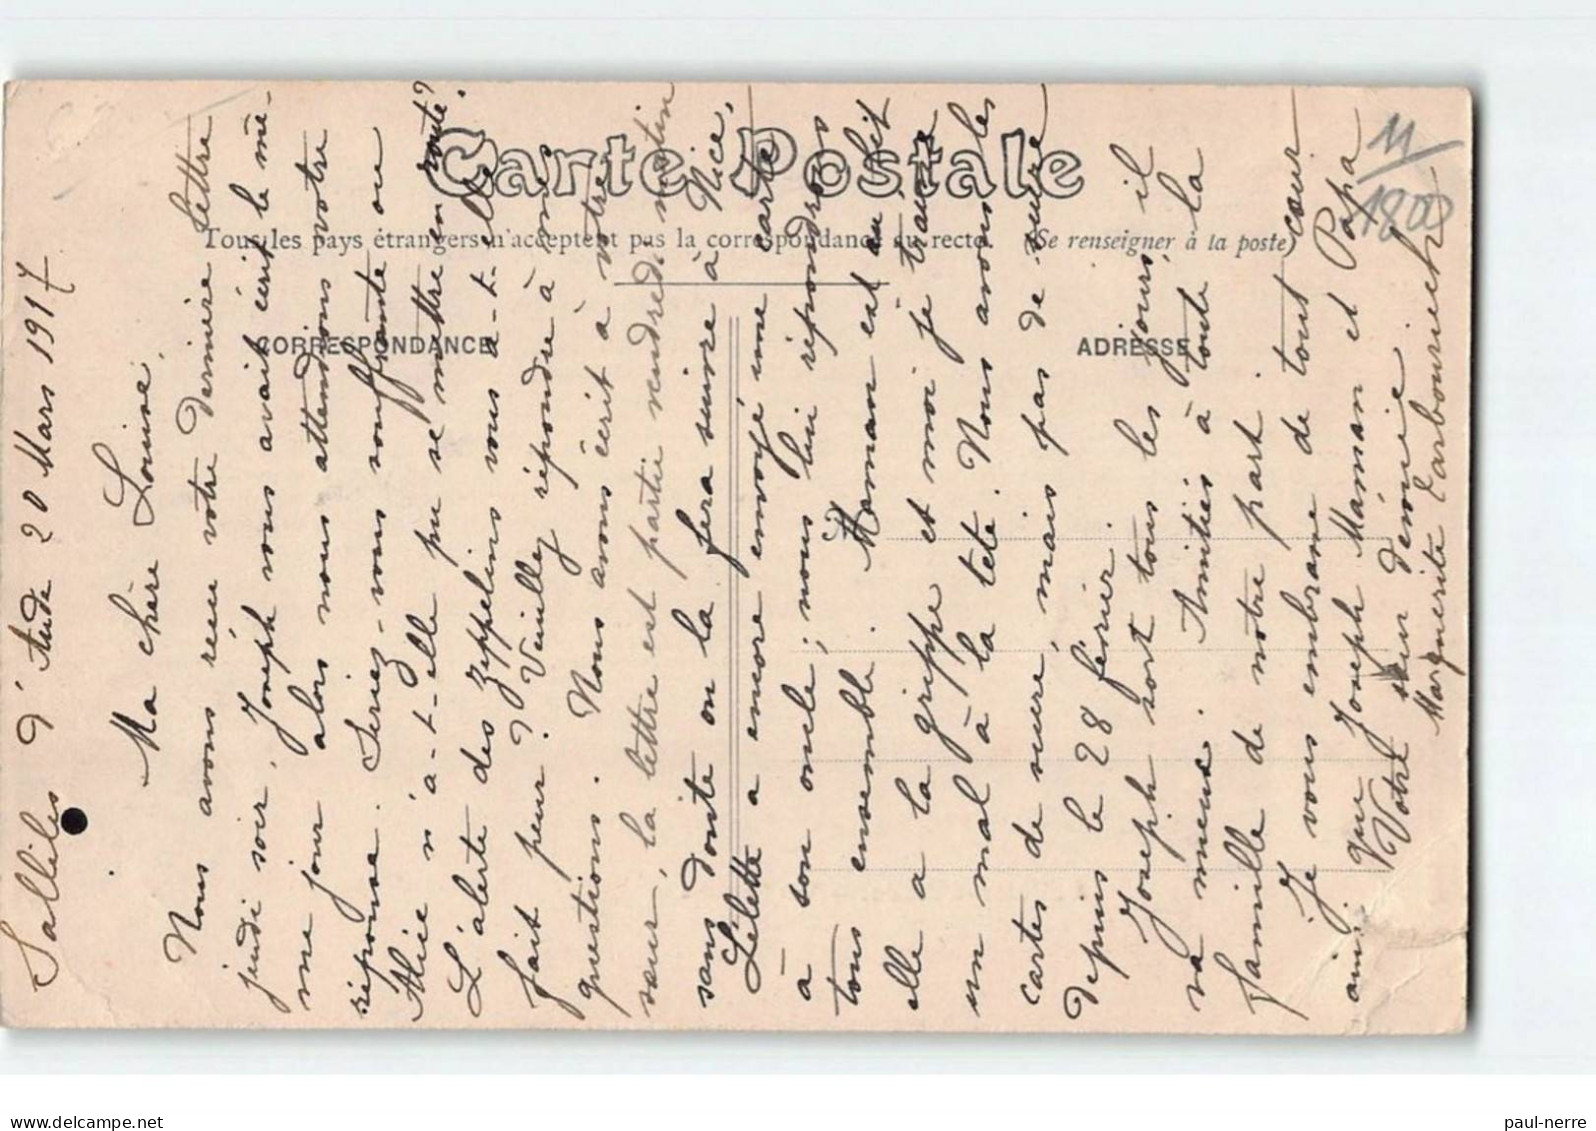 Carte Postale
Tous les pays étrangers n'acceptent pas la correspondance au recto. (Se renseigner à la poste)
CORRESPONDANCE
ADRESSE
M
11/
1800
Sallèles d'Aude 20 Mars 1917
Ma chère Louise,
Nous avons reçu votre dernière lettre
jeudi soir, Joseph vous avait écrit le mê-
me jour alors nous attendions votre
réponse. Seriez-vous souffrante ou
Alice n'a-t-elle pu se mettre en route?
L'alerte des zeppelins vous a-t-elle
fait peur? Veuillez répondre à mes
questions. Nous avons écrit à votre
sœur, la lettre est partie vendredi matin
sans doute on la fera suivre à Nice,
Lélette a encore envoyé une carte
à son oncle; nous lui répondrons
tous ensemble. Maman est au lit
elle a la grippe et moi je traîne
un mal à la tête. Nous avons les
cartes de sucre, mais pas de sucre
depuis le 28 février.
Joseph sort tous les jours, il
va mieux. Amitiés à toute la
famille de notre part.
Je vous embrasse de tout cœur
ainsi que Joseph Maman et Papa
Votre sœur dévouée
Marguerite
paul-nerre